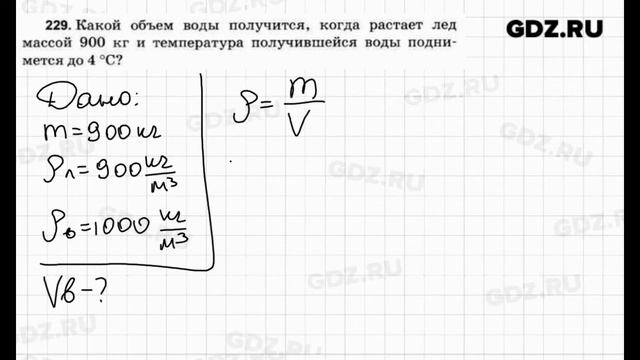 229. Какой объем воды получится, когда растает лед
массой 900 кг и температура получившейся воды подни-
мется до 4 °С?
GDZ.RU
Дано:
m=900кг
ρл=900 кг/м³
ρв=1000 кг/м³
Vв-?
ρ= m/V
GDZ.RU
GDZ.RU
GDZ.RU
GDZ.RU
GDZ.RU
GDZ.RU
GDZ.RU